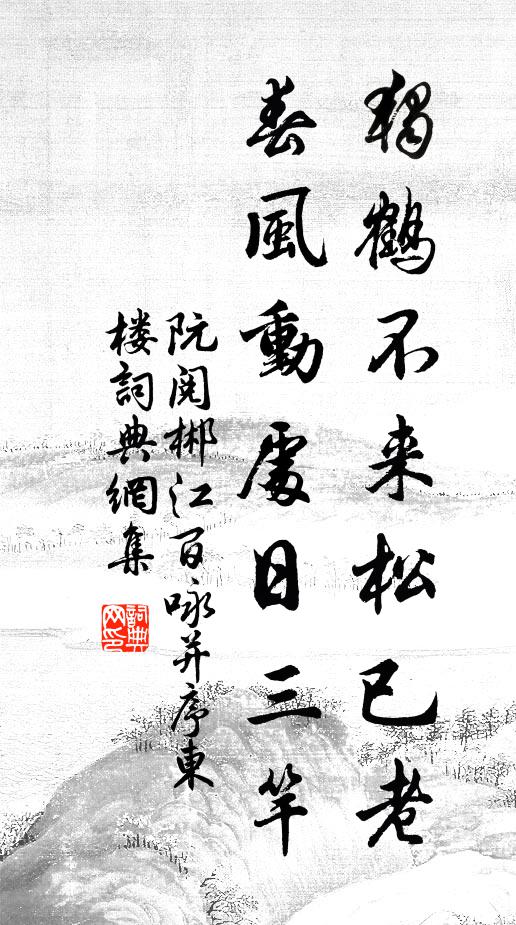 獨鶴不来松已老
春風動處日三竿
阮閱郴江百咏并序東
楼詞典網集
詞典网印